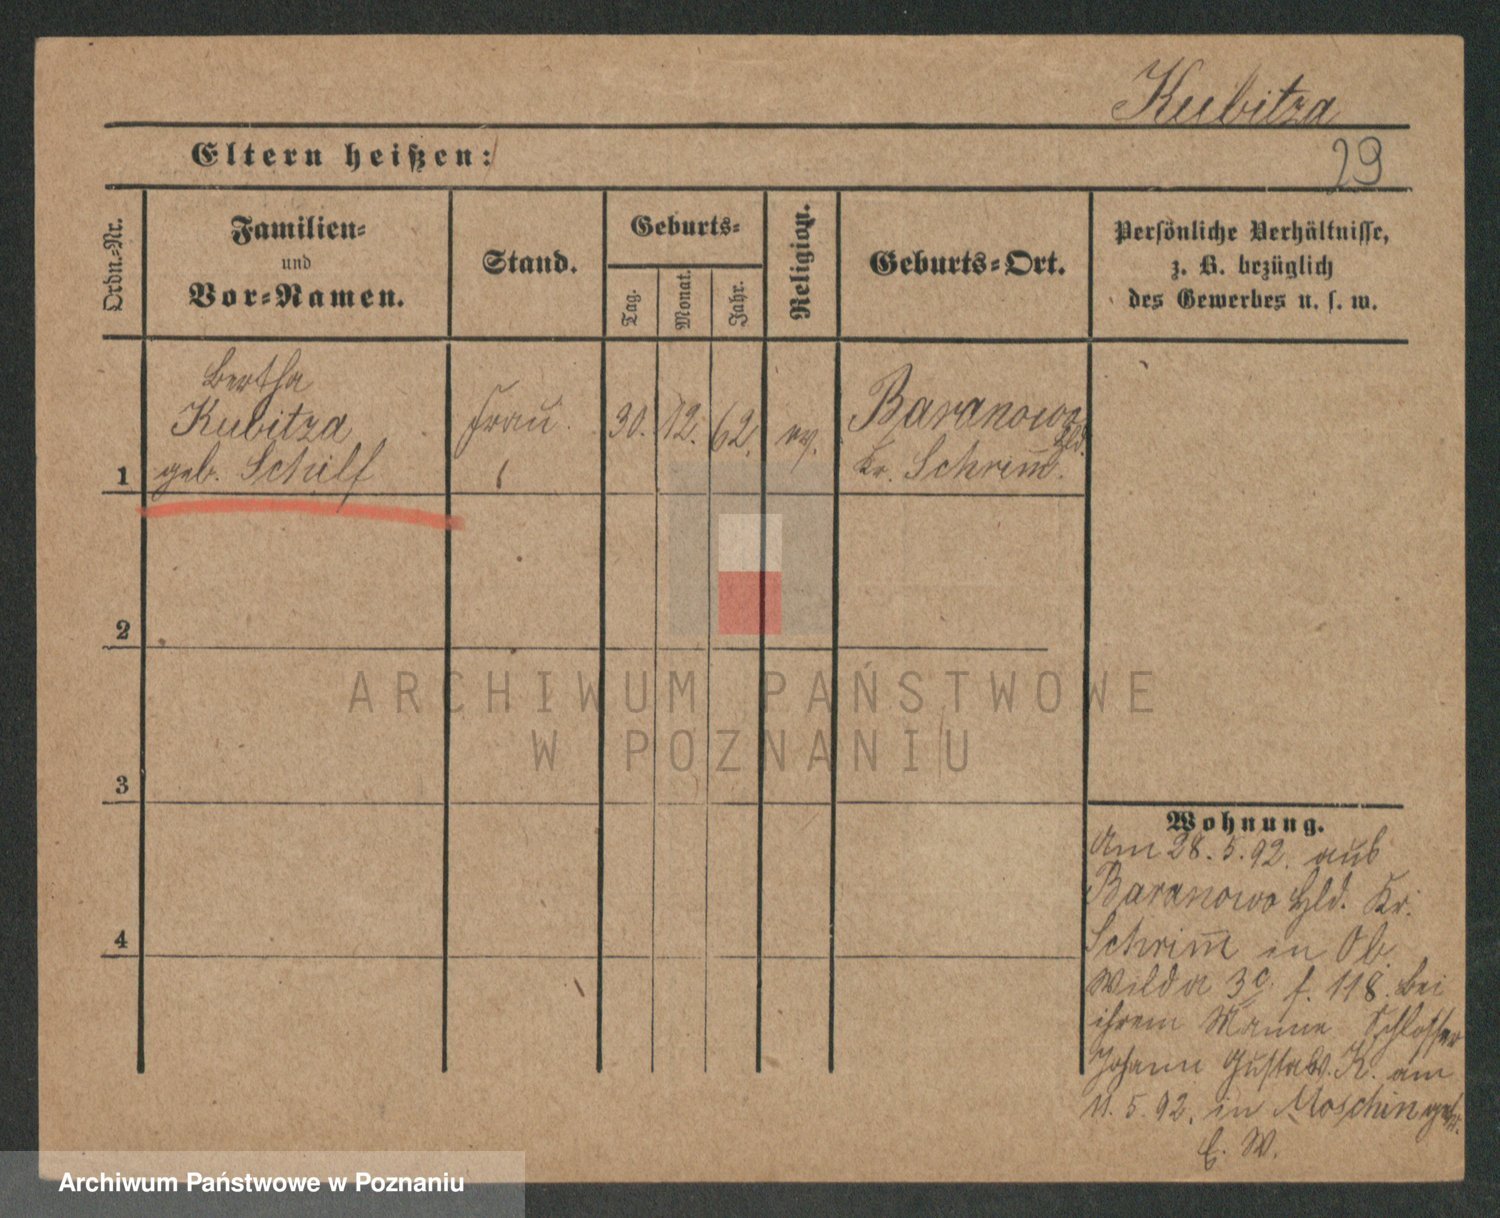 Kubitza
Eltern heißen:
29
Ordn.-Nr.
Familien-
und
Vor-Namen.
Stand.
Geburts-
Tag.
Monat.
Jahr.
Religion.
Geburts-Ort.
Persönliche Verhältnisse,
z. B. bezüglich
des Gewerbes u. s. w.
1
Bertha
Kubitza
geb. Schilf
Frau.
30.
12.
62.
ev.
Baranowo
Hld.
Kr. Schrim̄.
2
3
4
Wohnung.
Am 28. 5. 92. aus
Baranowo Hld. Kr.
Schrim̄ in Ob.
Wilda 3c. f. 118. bei
ihrem Manne Schlosser
Johann Gustav K. am
11. 5. 92. in Moschin getr.
E. W.
ARCHIWUM PAŃSTWOWE
W POZNANIU
Archiwum Państwowe w Poznaniu